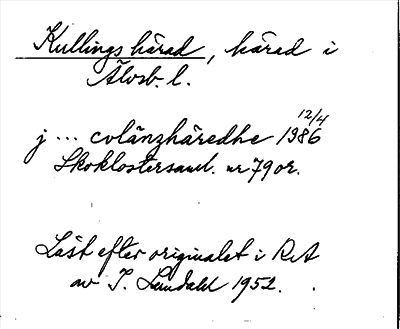 Kullings härad, härad i
Älvsb. l.
j ... colänzhäredhe 1386 12/4
Skoklostersaml. nr 79 or.
Läst efter originalet i RA
av I. Lundahl 1952.